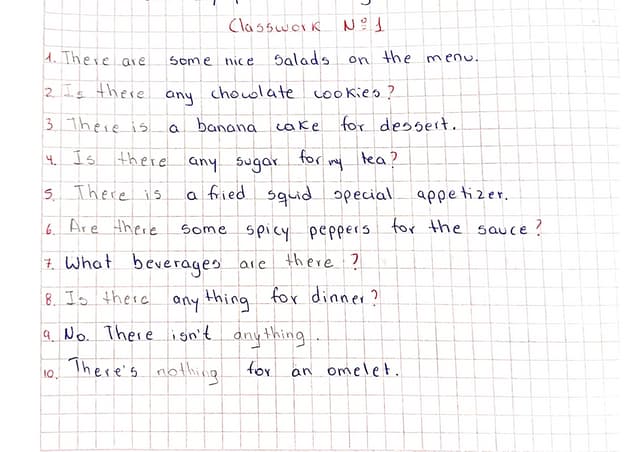 Classwork Nº 1
1. There are some nice salads on the menu.
2 Is there any chocolate cookies?
3. There is a banana cake for dessert.
4. Is there any sugar for my tea?
5. There is a fried squid special appetizer.
6. Are there some spicy peppers for the sauce?
7. What beverages are there?
8. Is there anything for dinner?
9. No. There isn't anything.
10. There's nothing for an omelet.